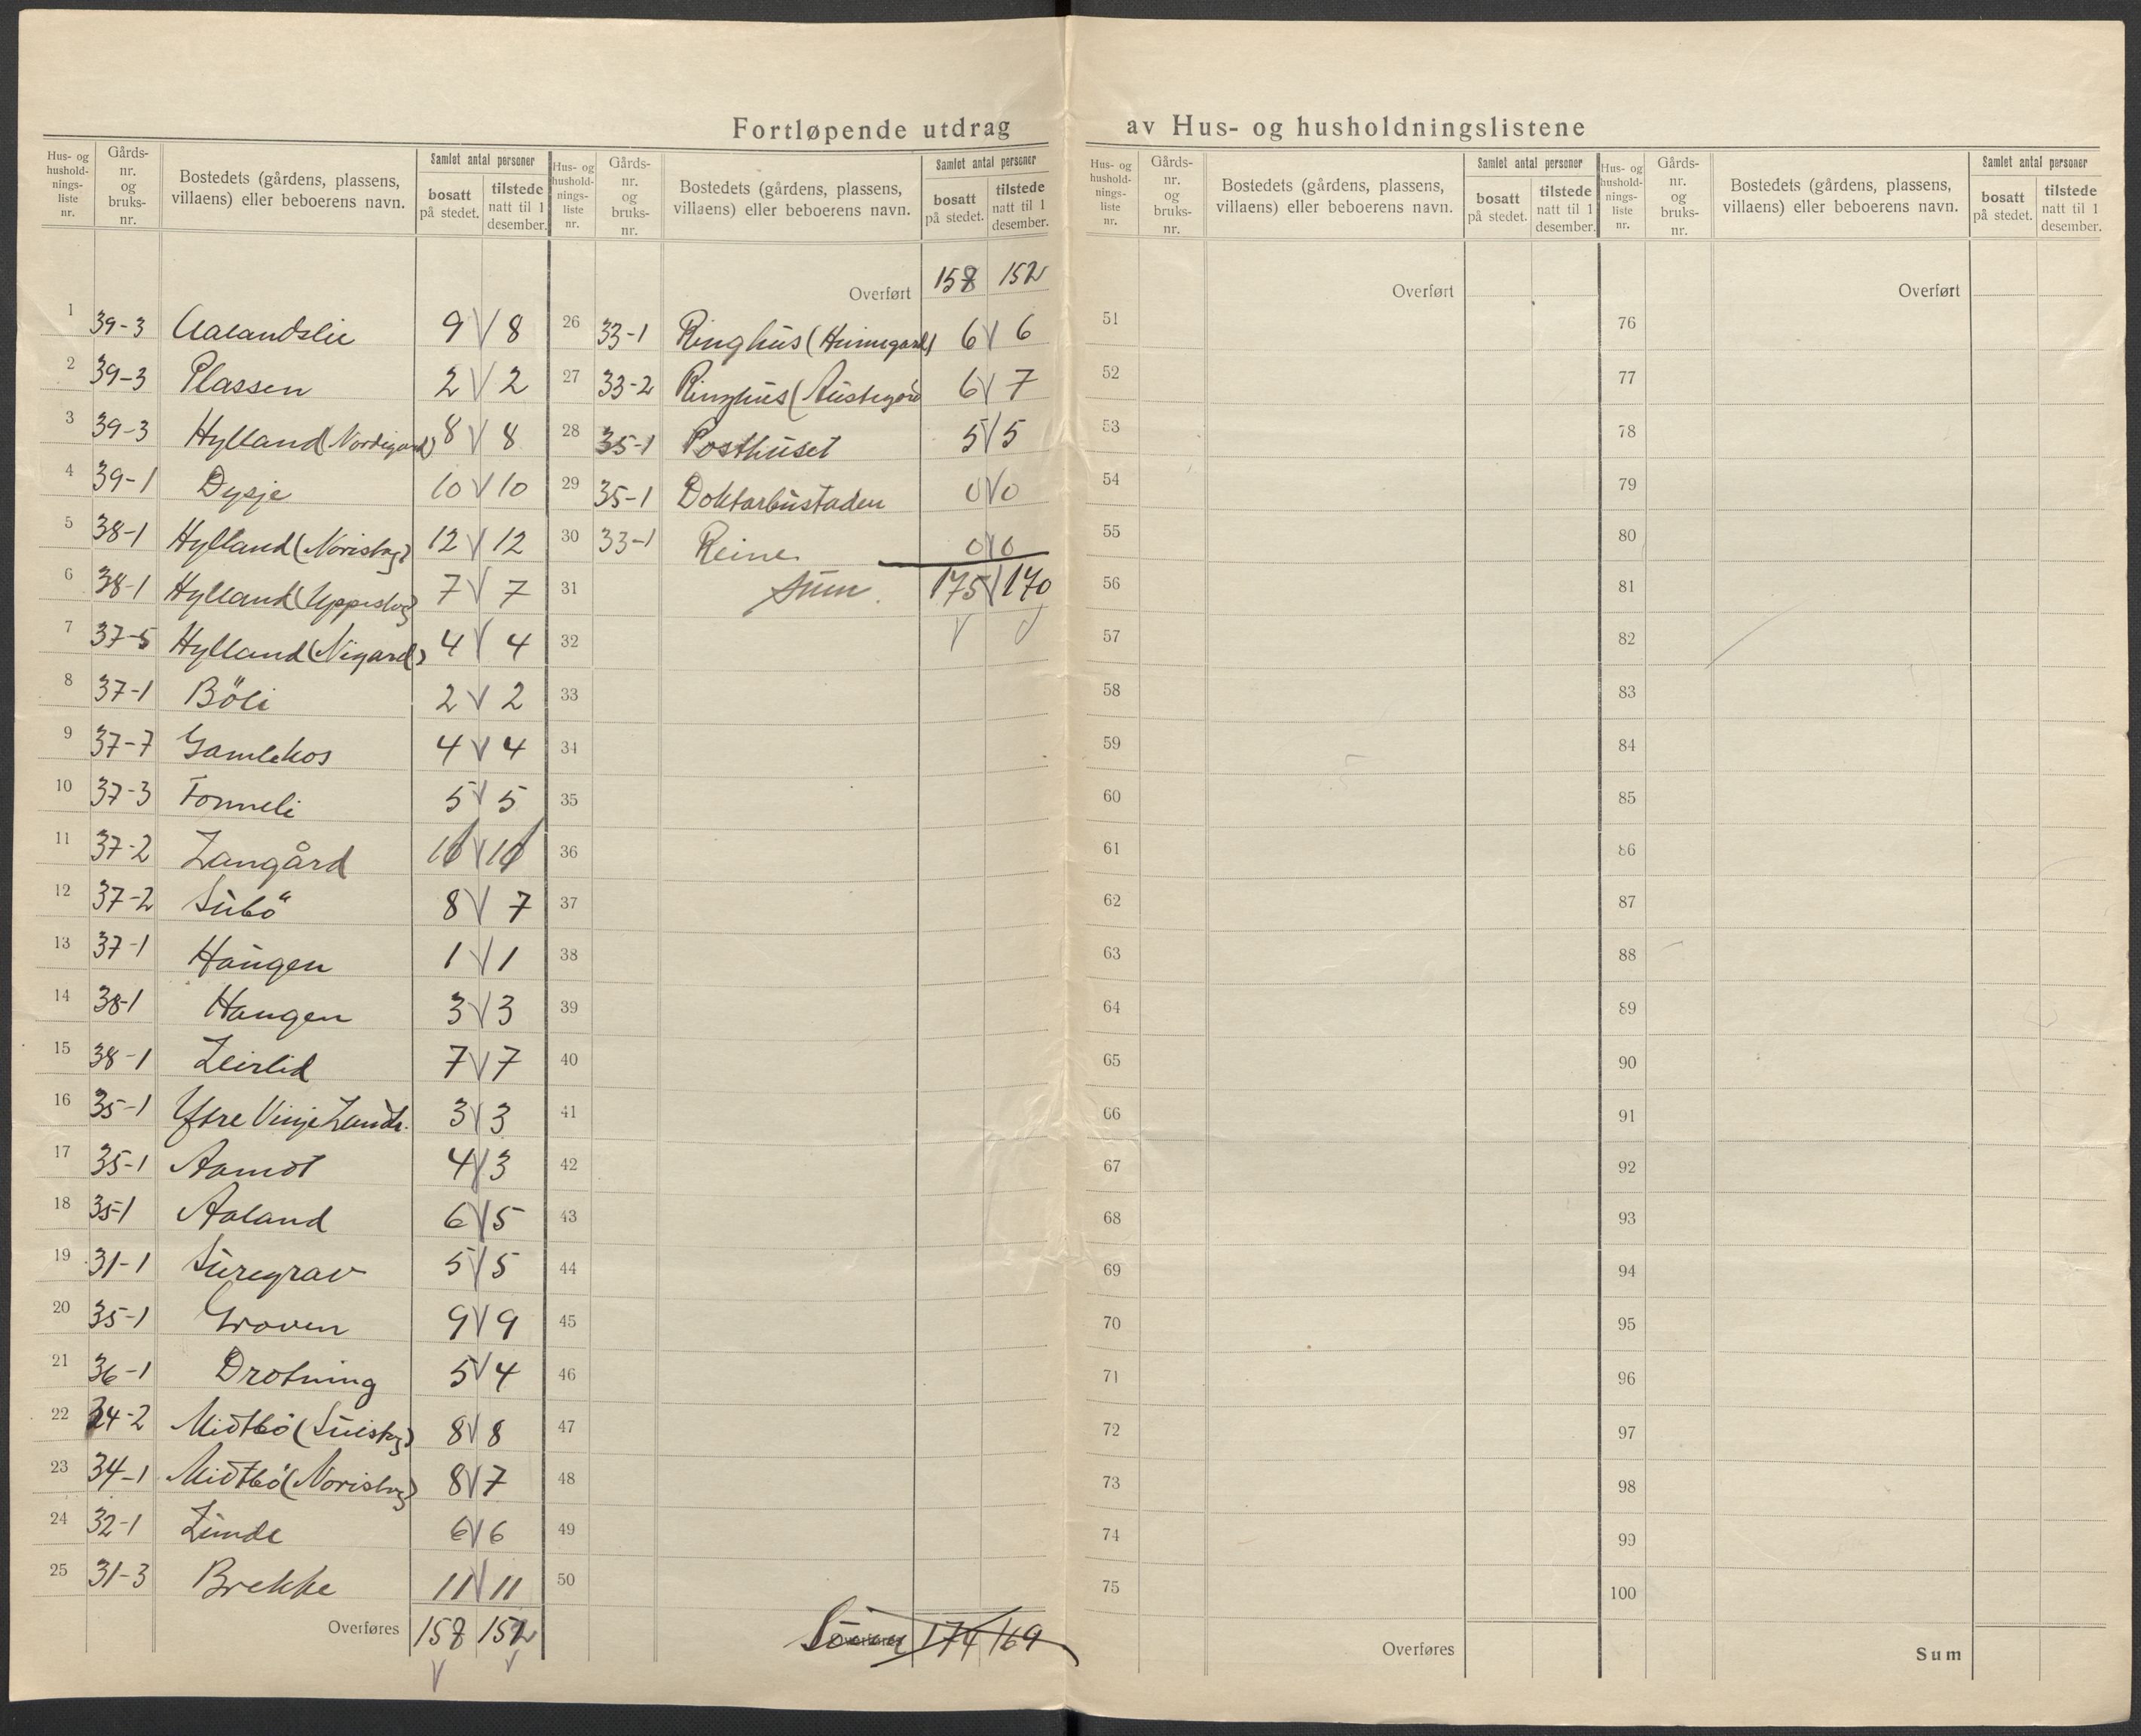 Fortløpende utdrag av Hus- og husholdningslistene
Hus- og hushold-nings-liste nr. Gårds-nr. og bruks-nr. Bostedets (gårdens, plassens, villaens) eller beboerens navn. Samlet antal personer bosatt på stedet. tilstede natt til 1 desember.
1 39-3 Aalandslie 9 V 8
2 39-3 Plassen 2 V 2
3 39-3 Hylland (Nordigard) 8 V 8
4 39-1 Dysje 10 V 10
5 38-1 Hylland (Noristog) 12 V 12
6 38-1 Hylland (Uppistog) 7 V 7
7 37-5 Hylland (Nigard) 4 V 4
8 37-1 Böli 2 V 2
9 37-7 Gamlekos 4 V 4
10 37-3 Fonneli 5 V 5
11 37-2 Langård 10 V 10
12 37-2 Subö 8 V 7
13 37-1 Haugen 1 V 1
14 38-1 Haugen 3 V 3
15 38-1 Leirlid 7 V 7
16 35-1 Yttre Vinje Landh. 3 V 3
17 35-1 Aamot 4 V 3
18 35-1 Aaland 6 V 5
19 31-1 Suregrav 5 V 5
20 35-1 Groven 9 V 9
21 36-1 Drotning 5 V 4
22 34-2 Midtbö (Suistog) 8 V 8
23 34-1 Midtbö (Noristog) 8 V 7
24 32-1 Linde 6 V 6
25 31-3 Brekke 11 V 11
Overføres 158 152
V V
Hus- og hushold-nings-liste nr. Gårds-nr. og bruks-nr. Bostedets (gårdens, plassens, villaens) eller beboerens navn. Samlet antal personer bosatt på stedet. tilstede natt til 1 desember.
Overført 158 152
26 33-1 Ringhus (Heimegard) 6 V 6
27 33-2 Ringhus (Austigård 6 V 7
28 35-1 Posthuset 5 V 5
29 35-1 Doktarbustaden 0 V 0
30 33-1 Reine 0 V 0
31 Sum. 175 V 170
32 V V
33
34
35
36
37
38
39
40
41
42
43
44
45
46
47
48
49
50
Overføres 174 169
Hus- og hushold-nings-liste nr. Gårds-nr. og bruks-nr. Bostedets (gårdens, plassens, villaens) eller beboerens navn. Samlet antal personer bosatt på stedet. tilstede natt til 1 desember.
Overført
51
52
53
54
55
56
57
58
59
60
61
62
63
64
65
66
67
68
69
70
71
72
73
74
75
Overføres
Hus- og hushold-nings-liste nr. Gårds-nr. og bruks-nr. Bostedets (gårdens, plassens, villaens) eller beboerens navn. Samlet antal personer bosatt på stedet. tilstede natt til 1 desember.
Overført
76
77
78
79
80
81
82
83
84
85
86
87
88
89
90
91
92
93
94
95
96
97
98
99
100
Sum